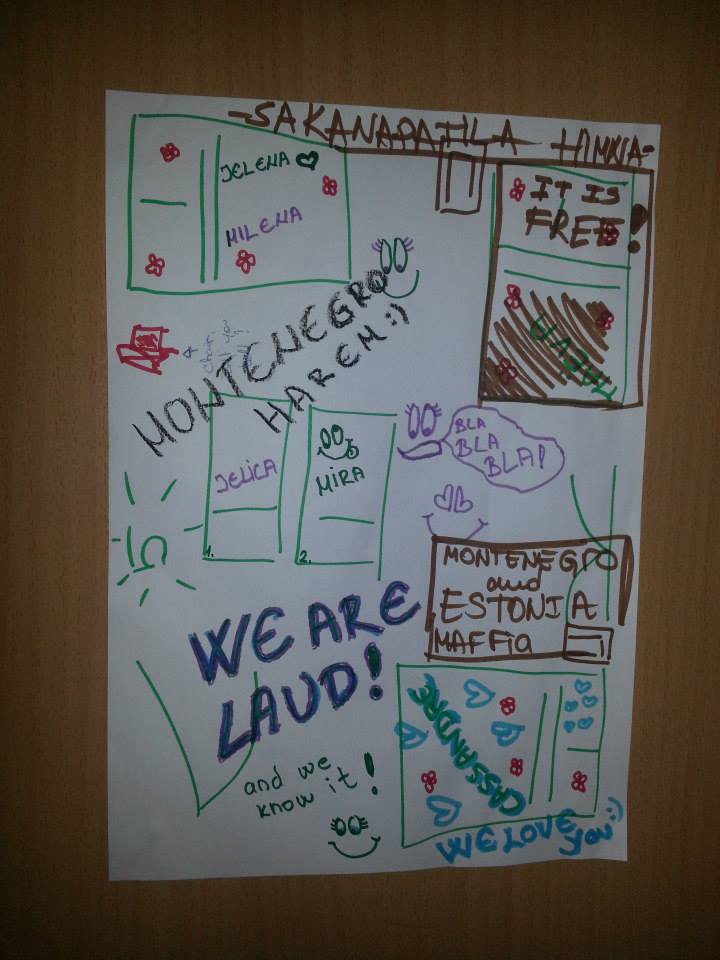 -SAKANAPAHLA HIMKIA-
JELENA
MILENA
IT IS
FREE!
MONTENEGRO
HAREM:)
JELICA
1.
MIRA
2.
BLA
BLA
BLA!
MONTENEGRO
and
ESTONIA
MAFFiA
WE ARE
LAUD!
and we
know it!
CASSANDRE
WE LOVE
you:)